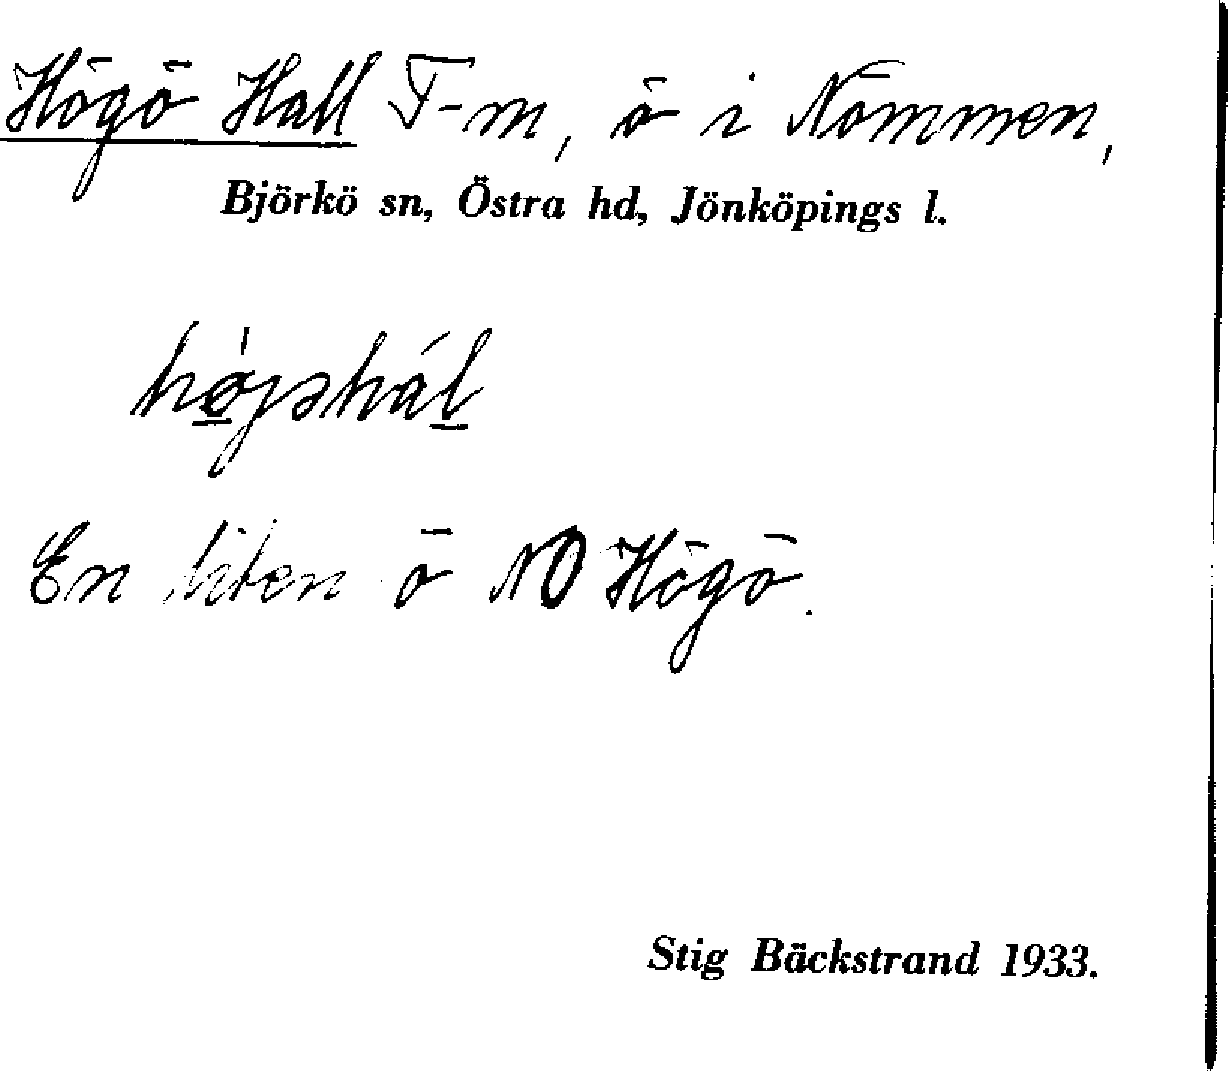 Högö Hall F-m, ö i Nömmen,
Björkö sn, Östra hd, Jönköpings l.
En liten ö NO Högö.
Stig Bäckstrand 1933.